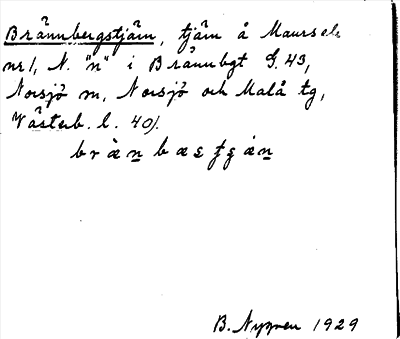 Brännbergstjärn, tjärn å Maursele
nr 1, N. "n" i Brännbgt G. 43,
Norsjö sn, Norsjö och Malå tg,
Västerb. l. 40).
B. Nygren 1929